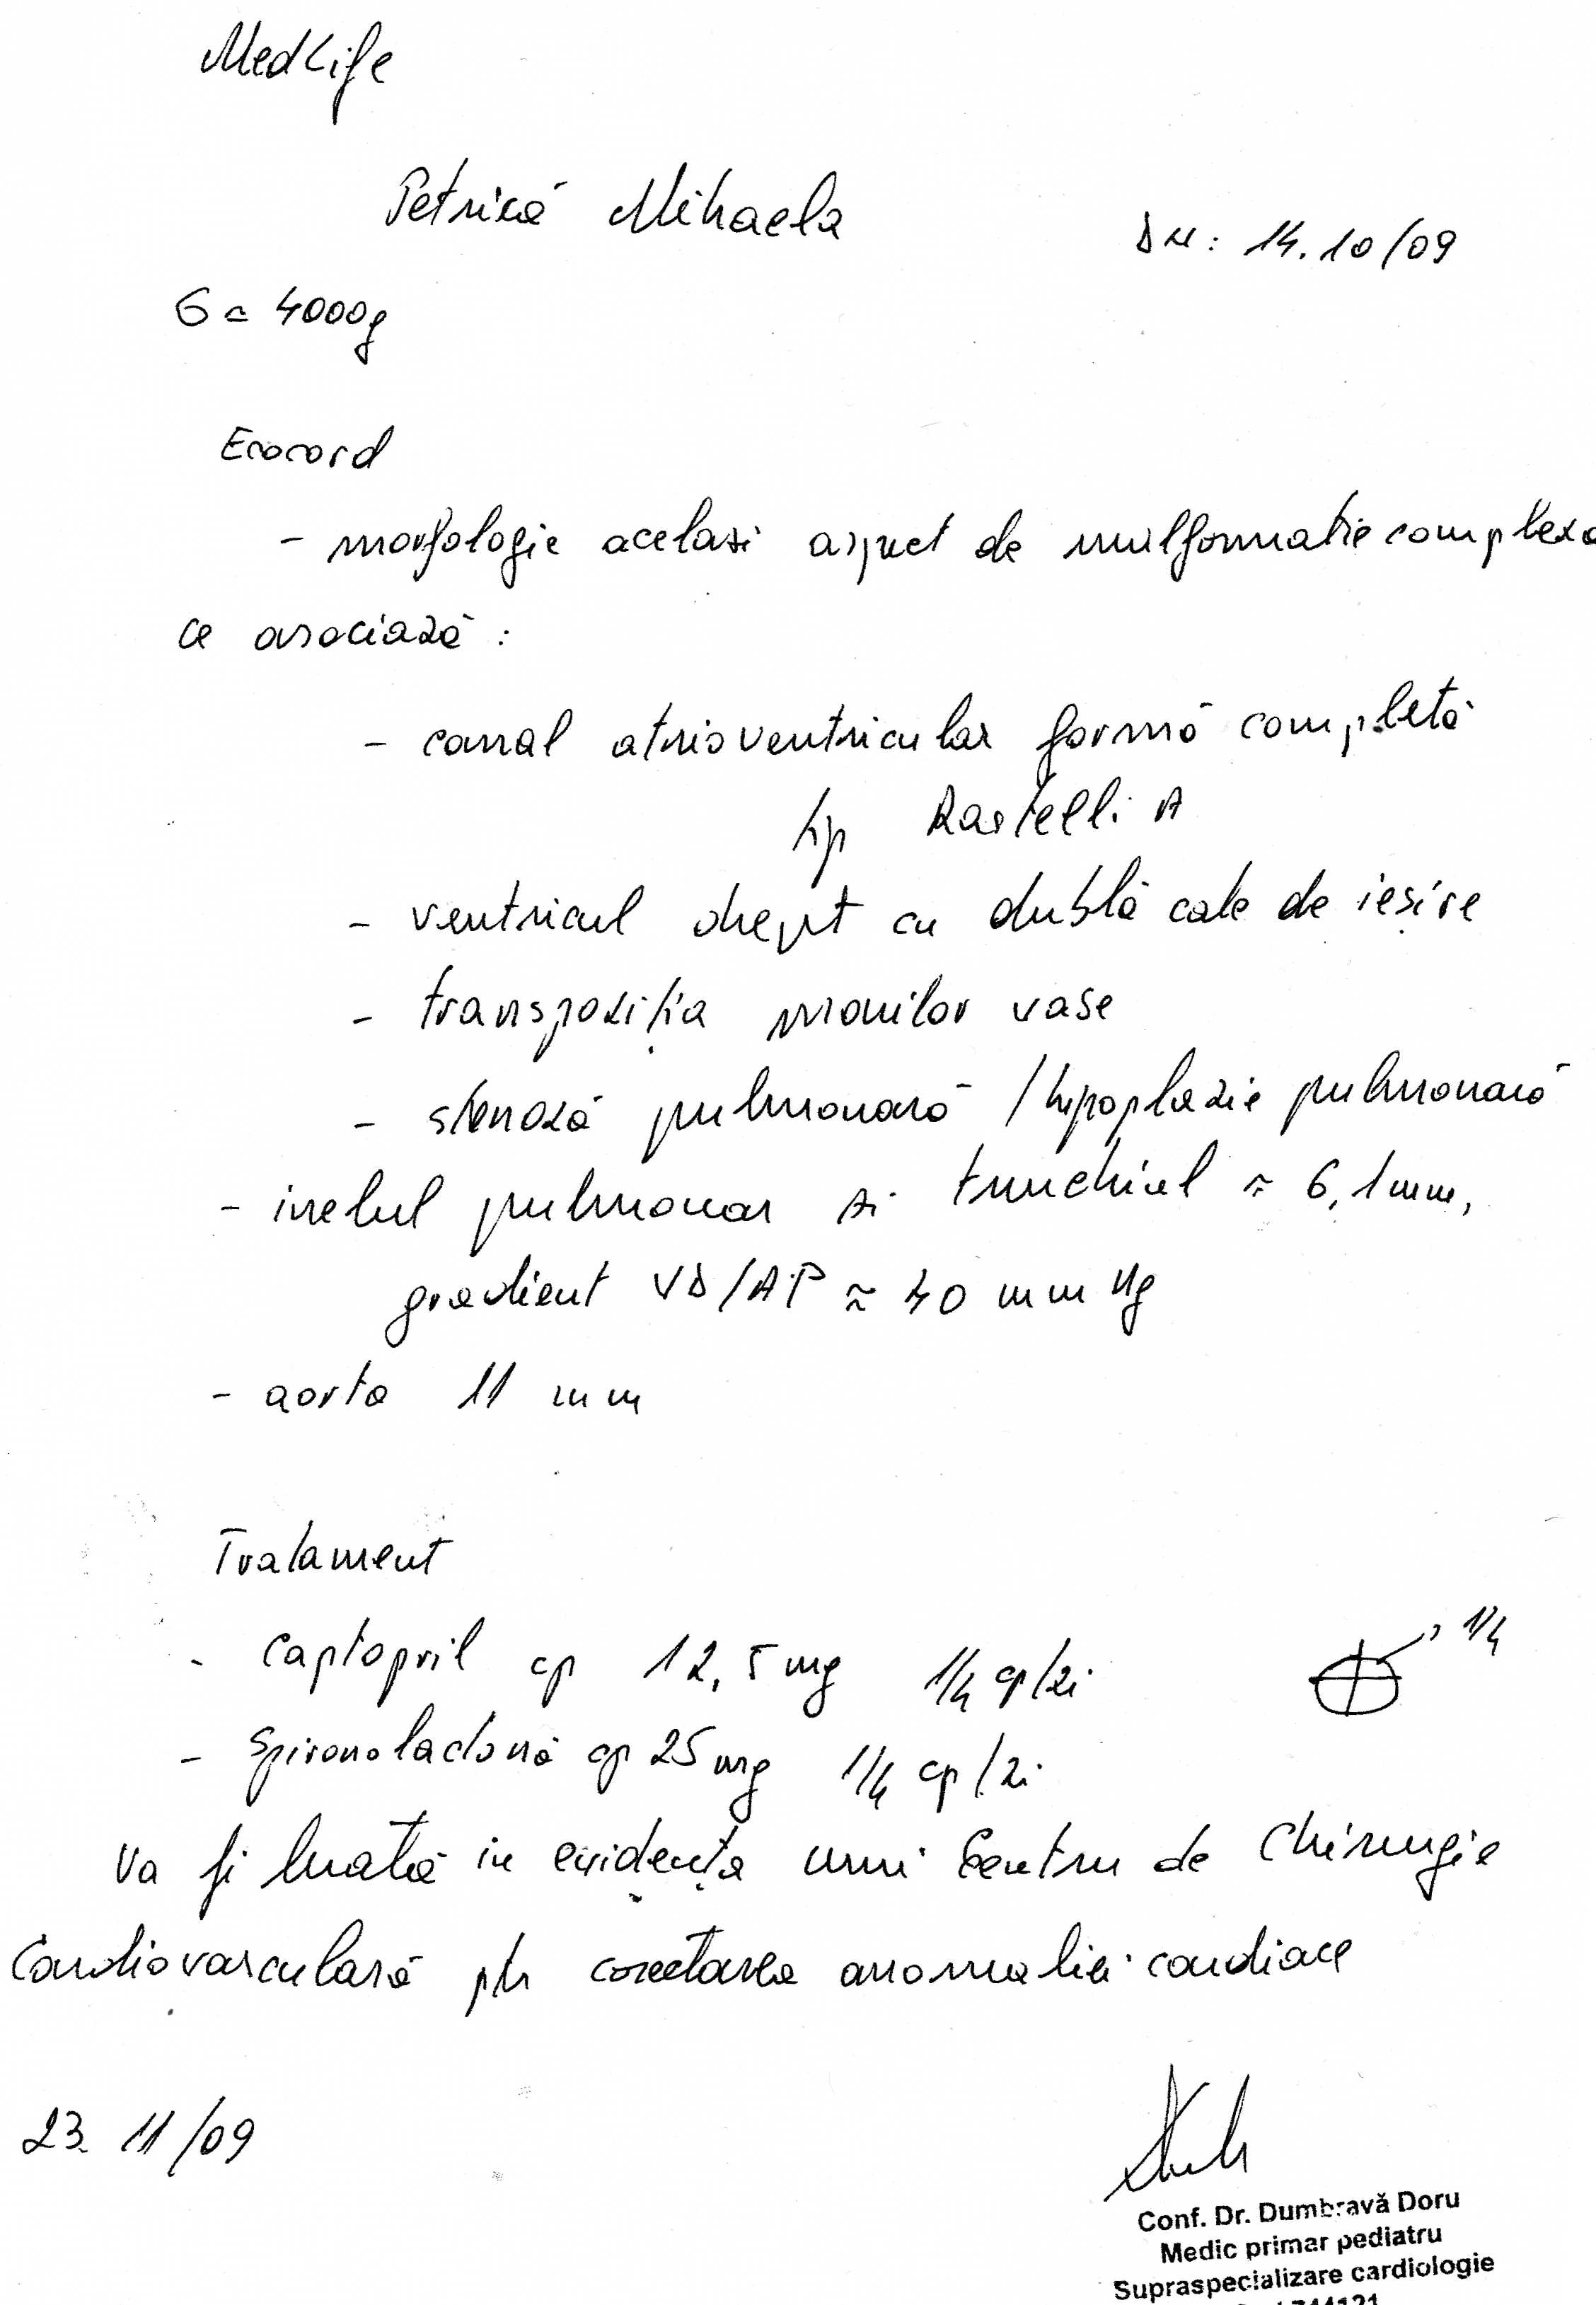 MedLife
Petrică Mihaela
DN: 14.10/09
G = 4000g
Ecocord
- morfologie acelasi aspect de malformatie complexa
ce asociază :
- canal atrioventricular formă completă
tip Rastelli A
- ventricul drept cu dublă cale de ieșire
- transpoziția marilor vase
- stenoză pulmonară / hipoplazie pulmonară
- inelul pulmonar si trunchiul ≈ 6,1 mm,
gradient VD/AP ≈ 40 mm Hg
- aorta 11 mm
Tratament
- Captopril cp 12,5 mg 1/4 cp/zi
1/4
- Spironolactonă cp 25 mg 1/4 cp/zi
Va fi luată in evidența unui Centru de Chirurgie
Cardiovasculară ptr corectarea anomaliei cardiace
23. 11/09
Conf. Dr. Dumbravă Doru
Medic primar pediatru
Supraspecializare cardiologie